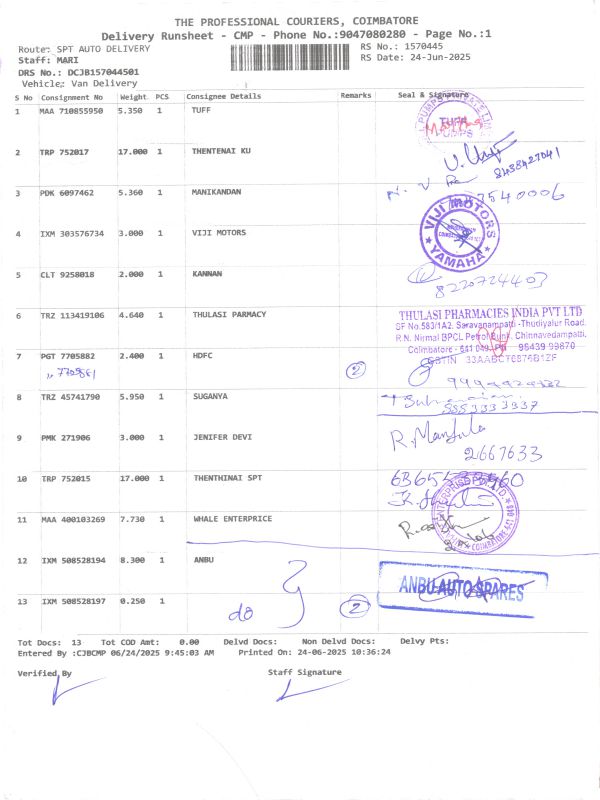 THE PROFESSIONAL COURIERS, COIMBATORE
Delivery Runsheet - CMP - Phone No.:9047080280 - Page No.:1
Route: SPT AUTO DELIVERY
RS No.: 1570445
Staff: MARI
RS Date: 24-Jun-2025
DRS No.: DCJB157044501
Vehicle: Van Delivery
S No Consignment No Weight PCS Consignee Details Remarks Seal & Signature
1 MAA 710855950 5.350 1 TUFF
TUFF
PUMPS
2 TRP 752017 17.000 1 THENTENAI KU
8438427041
3 PDK 6097462 5.360 1 MANIKANDAN
4 IXM 303576734 3.000 1 VIJI MOTORS
VIJI MOTORS
YAMAHA
5 CLT 9258018 2.000 1 KANNAN
8220724403
6 TRZ 113419106 4.640 1 THULASI PARMACY
THULASI PHARMACIES INDIA PVT LTD
SF No.583/1A2, Saravanampatti -Thudiyalur Road,
R.N. Nirmal BPCL Petrol Bunk, Chinnavedampatti,
Coimbatore - 641 049. Ph 96439 99870
GSTIN 33AABCT0876B1ZF
7 PGT 7705882 2.400 1 HDFC 2
8 TRZ 45741790 5.950 1 SUGANYA
9 PMK 271906 3.000 1 JENIFER DEVI
R. Manjula
2667633
10 TRP 752015 17.000 1 THENTHINAI SPT
11 MAA 400103269 7.730 1 WHALE ENTERPRICE
12 IXM 508528194 8.300 1 ANBU
ANBU AUTO SPARES
13 IXM 508528197 0.250 1 do 2
Tot Docs: 13 Tot COD Amt: 0.00 Delvd Docs: Non Delvd Docs: Delvy Pts:
Entered By :CJBCMP 06/24/2025 9:45:03 AM Printed On: 24-06-2025 10:36:24
Verified By Staff Signature